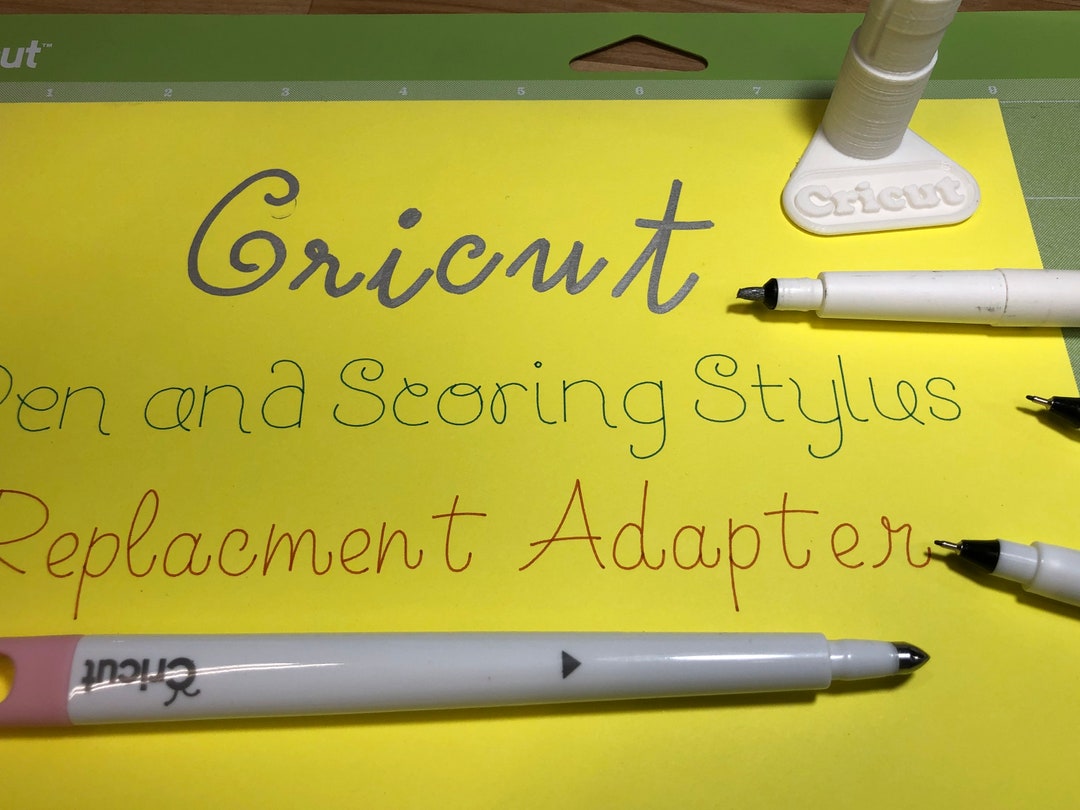 cut™
1 2 3 4 5 6 7 9
Cricut
Cricut
Pen and Scoring Stylus
Replacment Adapter
Cricut